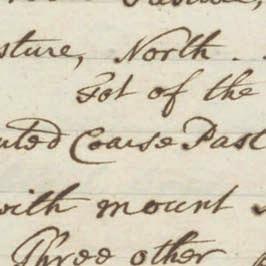 sture, North . .
Fot of the
uted Coarse Past
with mount
Three other